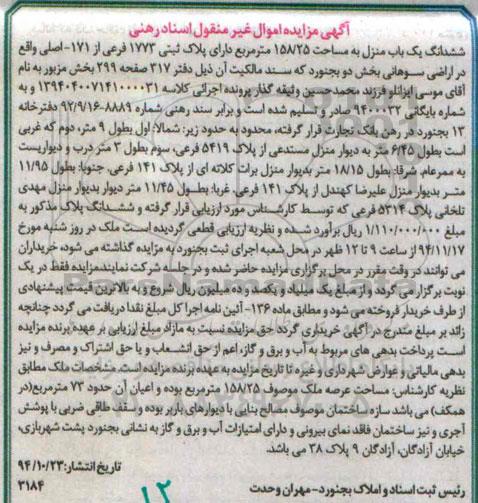 آگهی مزایده اموال غیر منقول اسناد رهنی
ششدانگ یک باب منزل به مساحت ۱۵۸/۲۵ مترمربع دارای پلاک ثبتی ۱۷۷۳ فرعی از ۱۷۱-اصلی واقع
در اراضی سوهانی بخش دو بجنورد که سند مالکیت آن ذیل دفتر ۳۱۷ صفحه ۲۹۹ بخش مزبور به نام
آقای موسی ایزانلو فرزند محمدحسین وثیقه گذار پرونده اجرائی کلاسه ۱۳۹۴۰۴۰۰۷۱۴۱۰۰۰۰۳۱ و به
شماره بایگانی ۹۴۰۰۰۳۲ صادر و تسلیم شده است و برابر سند رهنی شماره ۸۸۸۹-۹۲/۹/۱۶ دفترخانه
۱۳ بجنورد در رهن بانک تجارت قرار گرفته، محدود به حدود زیر: شمالا: اول بطول ۹ متر، دوم که غربی
است بطول ۶/۴۵ متر به دیوار منزل مستدعی از پلاک ۵۴۱۹ فرعی، سوم بطول ۳ متر درب و دیواریست
به ممرعام. شرقا: بطول ۱۸/۱۵ متر بدیوار منزل برات کلاته ای از پلاک ۱۴۱ فرعی. جنوبا: بطول ۱۱/۹۵
متر بدیوار منزل علیرضا کهندل از پلاک ۱۴۱ فرعی. غربا: بطول ۱۱/۴۵ متر دیوار بدیوار منزل مهدی
تلخابی پلاک ۵۳۱۴ فرعی که توسط کارشناس مورد ارزیابی قرار گرفته و ششدانگ پلاک مذکور به
مبلغ ۱/۱۱۰/۰۰۰/۰۰۰ ریال برآورد شده و نظریه ارزیابی قطعی گردیده است ملک در روز شنبه مورخ
۹۴/۱۱/۱۷ از ساعت ۹ تا ۱۲ ظهر در محل شعبه اجرای ثبت بجنورد به مزایده گذاشته می شود، خریداران
می توانند در وقت مقرر در محل برگزاری مزایده حاضر شده و در جلسه شرکت نمایند مزایده فقط در یک
نوبت برگزار می گردد و از مبلغ یک میلیارد و یکصد و ده میلیون ریال شروع و به بالاترین قیمت پیشنهادی
از طرف خریدار فروخته می شود و مطابق ماده ۱۳۶-آئین نامه اجرا کل مبلغ نقدا دریافت می گردد چنانچه
زائد بر مبلغ مندرج در آگهی خریداری گردد حق مزایده نسبت به مازاد مبلغ ارزیابی بر عهده برنده مزایده
است پرداخت بدهی های مربوط به آب و برق و گاز، اعم از حق انشعاب و یا حق اشتراک و مصرف و نیز
بدهی مالیاتی و عوارض شهرداری و غیره تا تاریخ مزایده به عهده برنده مزایده است. مشخصات ملک مطابق
نظریه کارشناس: مساحت عرصه ملک موصوف ۱۵۸/۲۵ مترمربع بوده و اعیان آن حدود ۷۳ مترمربع(در
همکف) می باشد سازه ساختمان موصوف مصالح بنایی با دیوارهای باربر بوده و سقف طاقی ضربی با پوشش
آجری و نیز ساختمان فاقد نمای بیرونی و دارای امتیازات آب و برق و گاز به نشانی بجنورد پشت شهربازی،
خیابان آزادگان، آزادگان ۹ پلاک ۳۸ می باشد.
تاریخ انتشار: ۹۴/۱۰/۲۳
رئیس ثبت اسناد و املاک بجنورد-مهران وحدت
۳۱۸۴
۱۲